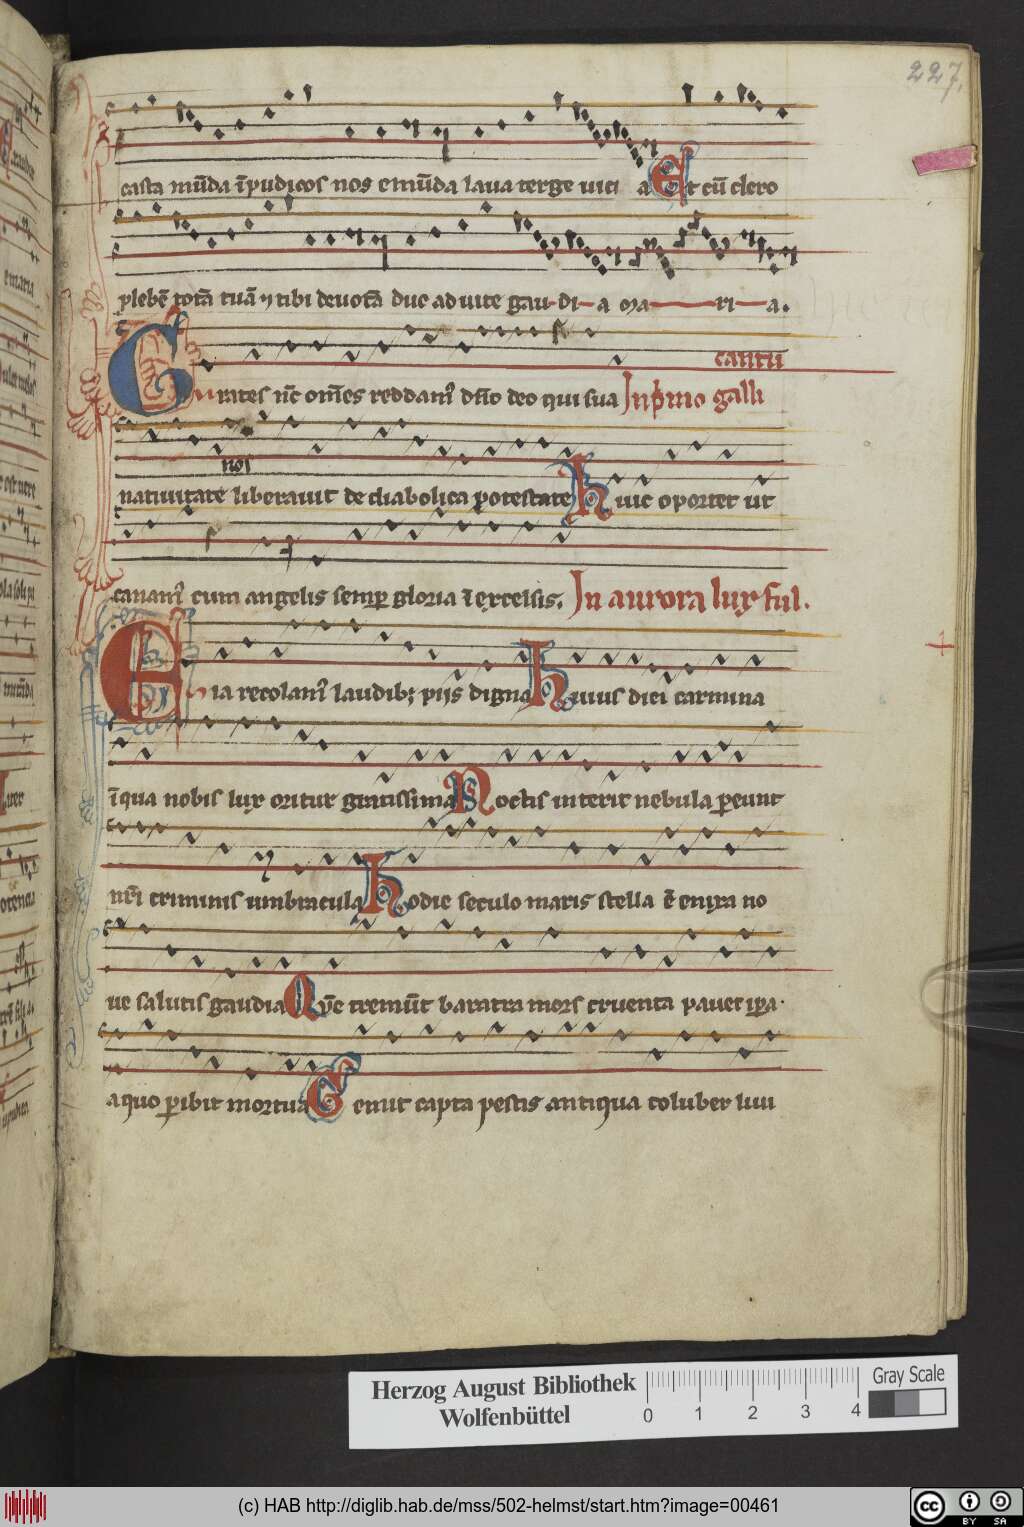 227.
casta mūda īpudicos nos emūda laua terge uici a Et cū clero
plebē totā tuā ⁊ tibi deuotā duc ad uite gau-di-a ma ri a.
cantū
Grates nc̄ om̄es reddam᷒ dn̄o deo qui sua In pͥmo galli
nos
natiuitate liberauit de diabolica potestate Huic oportet ut
canam᷒ cum angelis semp̱ gloria ī excelsis. In aurora lux ful.
Eia recolam᷒ laudib; pijs digna Huius diei carmina
ī qua nobis lux oritur gratissima Noctis interit nebula p̱eunt
nr̄i criminis umbracula Hodie seculo maris stella ē enixa no
ue salutis gaudia Quē tremūt baratra mors cruenta pauet ip̄a
a quo p̱ibit mortua Gemit capta pestis antiqua coluber liui
Herzog August Bibliothek
Wolfenbüttel
0 1 2 3 4
Gray Scale
(c) HAB http://diglib.hab.de/mss/502-helmst/start.htm?image=00461
cc BY SA